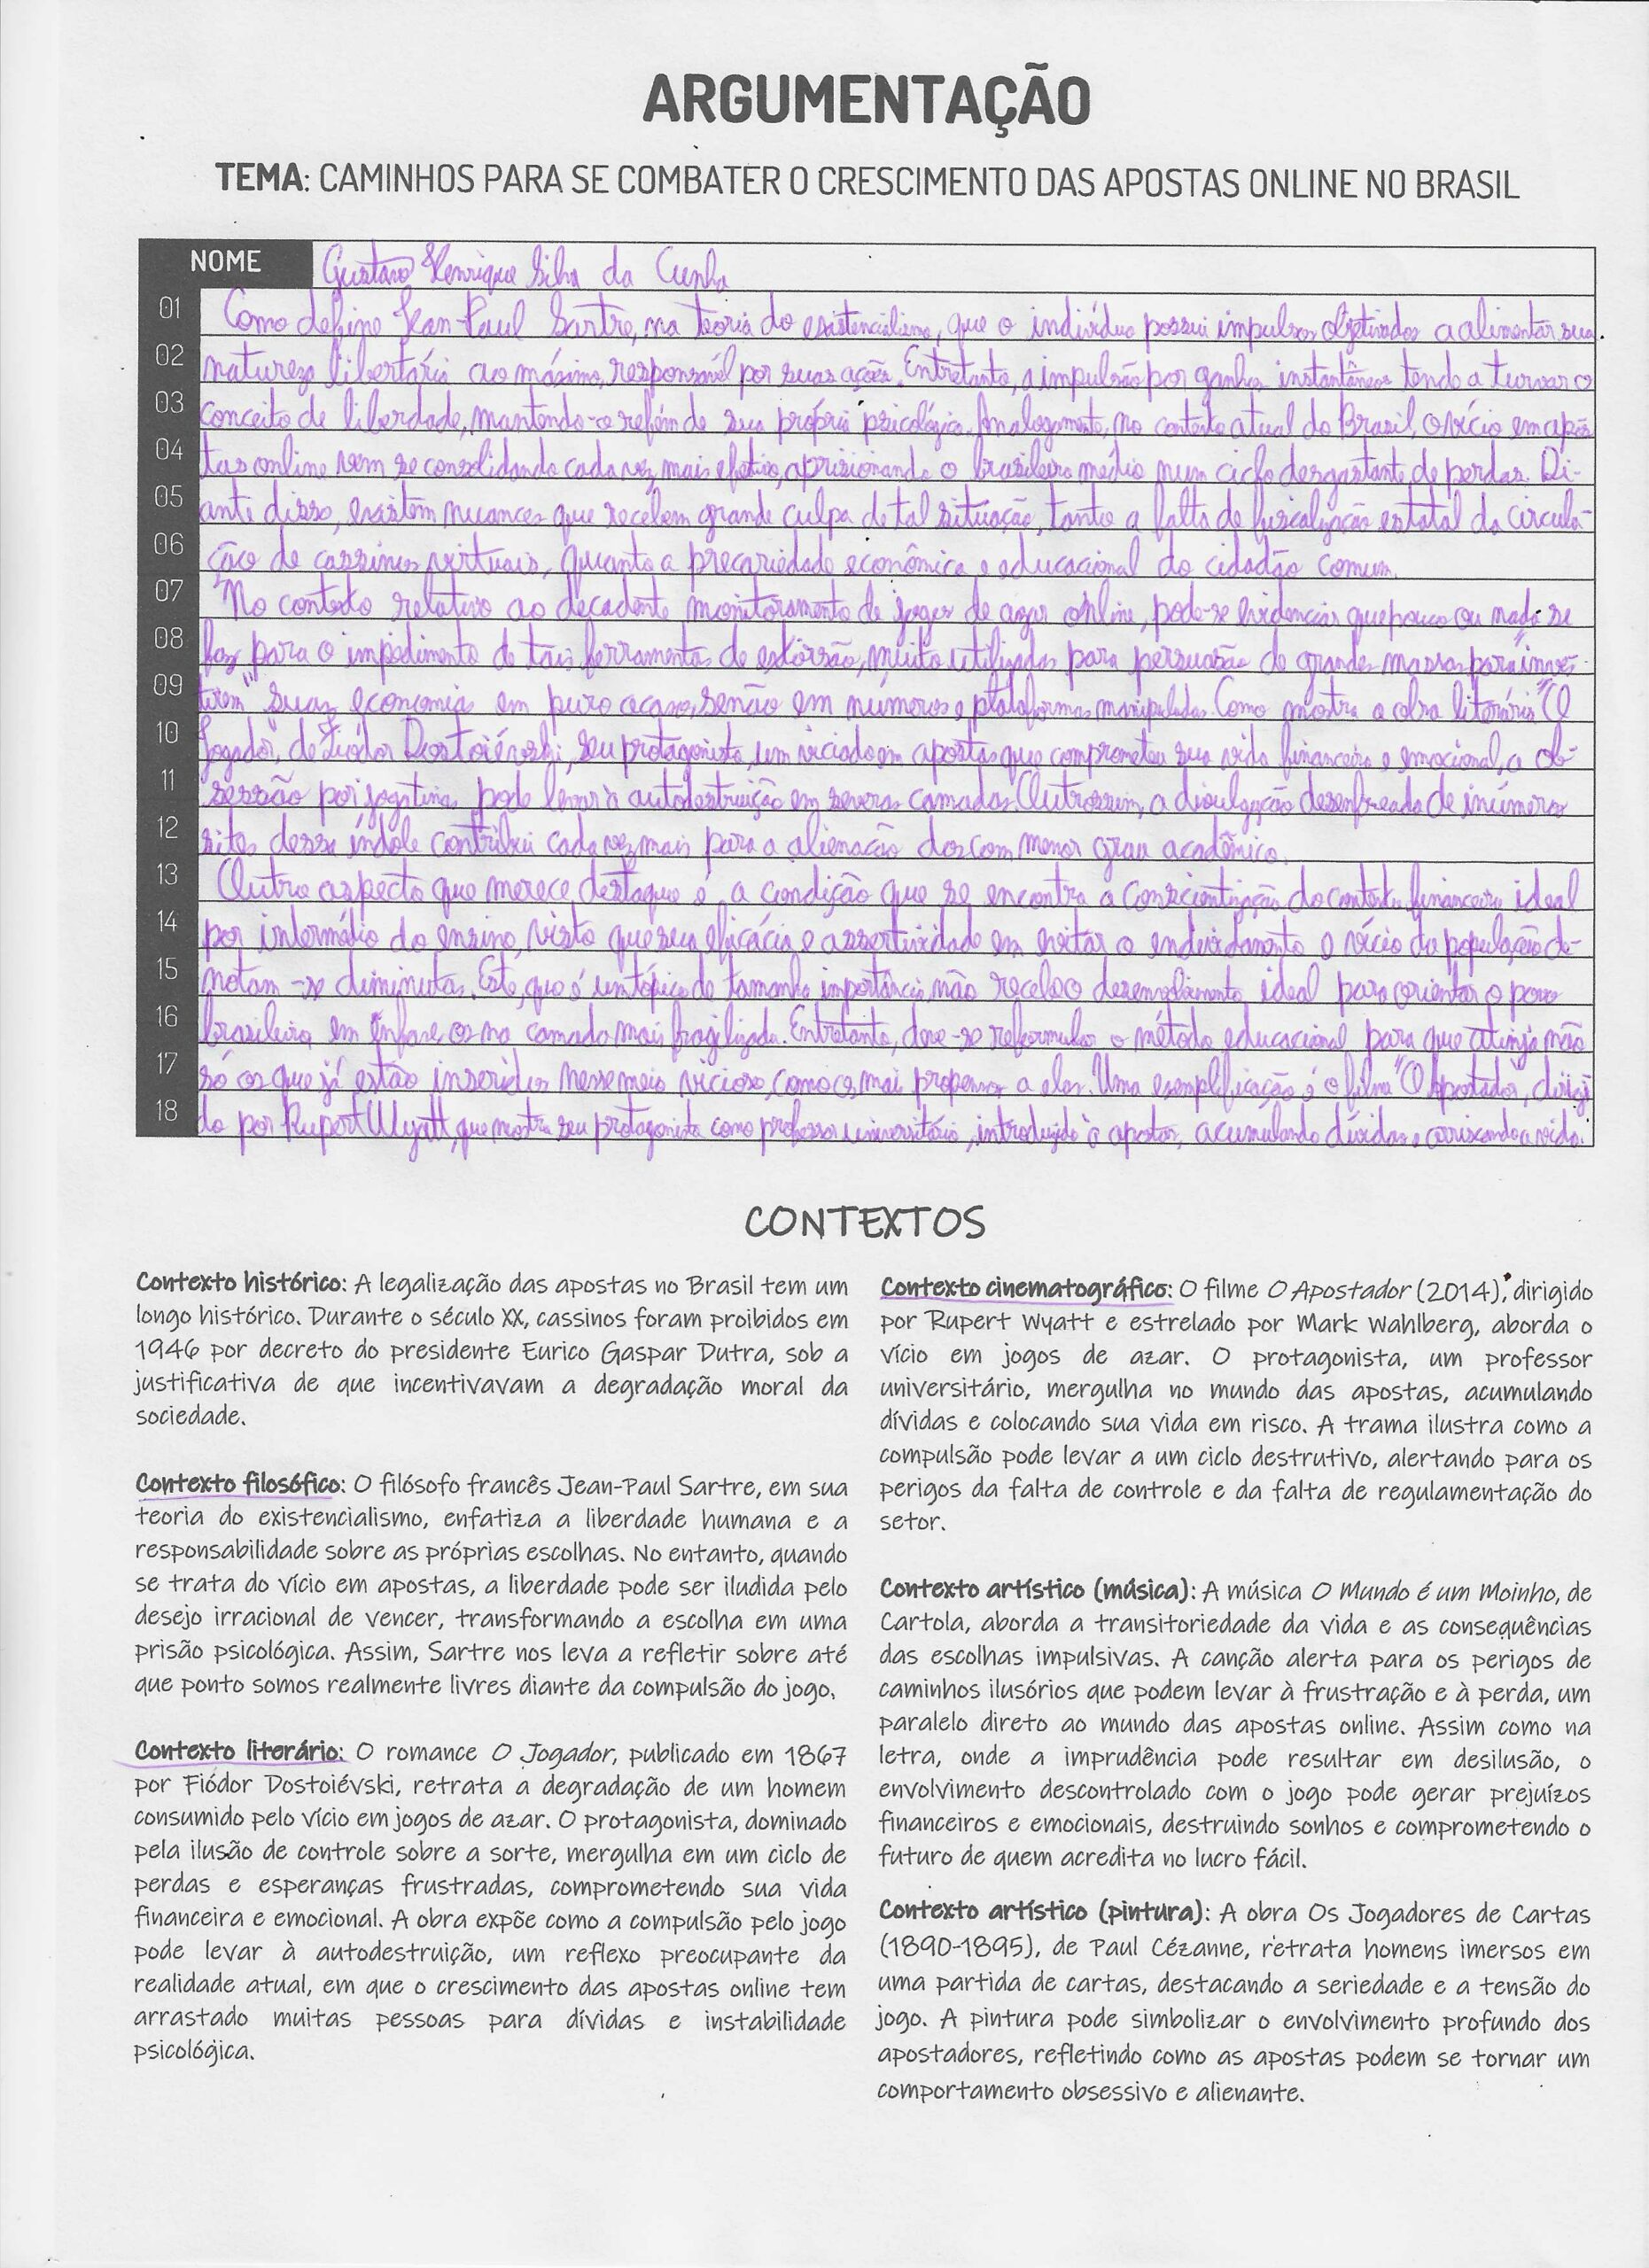 ARGUMENTAÇÃO
TEMA: CAMINHOS PARA SE COMBATER O CRESCIMENTO DAS APOSTAS ONLINE NO BRASIL
NOME Gustavo Henrique Silva da Cunha
01 Como define Jean-Paul Sartre, na teoria do existencialismo, que o indivíduo possui impulsos objetivados a alimentar sua
02 natureza libertária ao máximo, responsável por suas ações. Entretanto, a impulsão por ganhos instantâneos tende a turvar o
03 conceito de liberdade, mantendo-o refém de seu próprio psicológico. Analogamente, no contexto atual do Brasil, o vício em apos
04 tas online vem se consolidando cada vez mais efetivo, aprisionando o brasileiro médio num ciclo desgastante de perdas. Di-
05 ante disso, existem nuances que recebem grande culpa de tal situação, tanto a falta de fiscalização estatal da circula-
06 ção de cassinos virtuais, quanto a precariedade econômica e educacional do cidadão comum.
07 No contexto relativo ao decadente monitoramento de jogos de azar online, pode-se evidenciar que pouco ou nada se
08 faz para o impedimento de tais ferramentas de extorsão, muito utilizadas para persuasão de grandes massas para "inves-
09 tirem" suas economias em puro acaso, senão em números e plataformas manipuladas. Como mostra a obra literária "O
10 Jogador", de Fiódor Dostoiévski, seu protagonista, um viciado em apostas que comprometeu sua vida financeira e emocional, a ob-
11 sessão por jogatinas pode levar à autodestruição em severas camadas. Outrossim, a divulgação desenfreada de inúmeros
12 sites dessa índole contribui cada vez mais para a alienação dos com menor grau acadêmico.
13 Outro aspecto que merece destaque é a condição que se encontra a conscientização do contexto financeiro ideal
14 por intermédio do ensino, visto que sua eficácia e assertividade em evitar o endividamento e vício da população de-
15 notam-se diminutas. Este, que é um tópico de tamanha importância, não recebe o desenvolvimento ideal para orientar o povo
16 brasileiro em ênfase, os na camada mais fragilizada. Entretanto, deve-se reformular o método educacional para que atinja não
17 só os que já estão inseridos nesse meio vicioso, como os mais propensos a eles. Uma exemplificação é o filme "O Apostador", dirigi
18 do por Rupert Wyatt, que mostra seu protagonista como professor universitário, introduzido à apostas, acumulando dívidas e arriscando a vida.
CONTEXTOS
Contexto histórico: A legalização das apostas no Brasil tem um
longo histórico. Durante o século XX, cassinos foram proibidos em
1946 por decreto do presidente Eurico Gaspar Dutra, sob a
justificativa de que incentivavam a degradação moral da
sociedade.
Contexto filosófico: O filósofo francês Jean-Paul Sartre, em sua
teoria do existencialismo, enfatiza a liberdade humana e a
responsabilidade sobre as próprias escolhas. No entanto, quando
se trata do vício em apostas, a liberdade pode ser iludida pelo
desejo irracional de vencer, transformando a escolha em uma
prisão psicológica. Assim, Sartre nos leva a refletir sobre até
que ponto somos realmente livres diante da compulsão do jogo.
Contexto literário: O romance O Jogador, publicado em 1867
por Fiódor Dostoiévski, retrata a degradação de um homem
consumido pelo vício em jogos de azar. O protagonista, dominado
pela ilusão de controle sobre a sorte, mergulha em um ciclo de
perdas e esperanças frustradas, comprometendo sua vida
financeira e emocional. A obra expõe como a compulsão pelo jogo
pode levar à autodestruição, um reflexo preocupante da
realidade atual, em que o crescimento das apostas online tem
arrastado muitas pessoas para dívidas e instabilidade
psicológica.
Contexto cinematográfico: O filme O Apostador (2014), dirigido
por Rupert Wyatt e estrelado por Mark Wahlberg, aborda o
vício em jogos de azar. O protagonista, um professor
universitário, mergulha no mundo das apostas, acumulando
dívidas e colocando sua vida em risco. A trama ilustra como a
compulsão pode levar a um ciclo destrutivo, alertando para os
perigos da falta de controle e da falta de regulamentação do
setor.
Contexto artístico (música): A música O Mundo é um Moinho, de
Cartola, aborda a transitoriedade da vida e as consequências
das escolhas impulsivas. A canção alerta para os perigos de
caminhos ilusórios que podem levar à frustração e à perda, um
paralelo direto ao mundo das apostas online. Assim como na
letra, onde a imprudência pode resultar em desilusão, o
envolvimento descontrolado com o jogo pode gerar prejuízos
financeiros e emocionais, destruindo sonhos e comprometendo o
futuro de quem acredita no lucro fácil.
Contexto artístico (pintura): A obra Os Jogadores de Cartas
(1890-1895), de Paul Cézanne, retrata homens imersos em
uma partida de cartas, destacando a seriedade e a tensão do
jogo. A pintura pode simbolizar o envolvimento profundo dos
apostadores, refletindo como as apostas podem se tornar um
comportamento obsessivo e alienante.